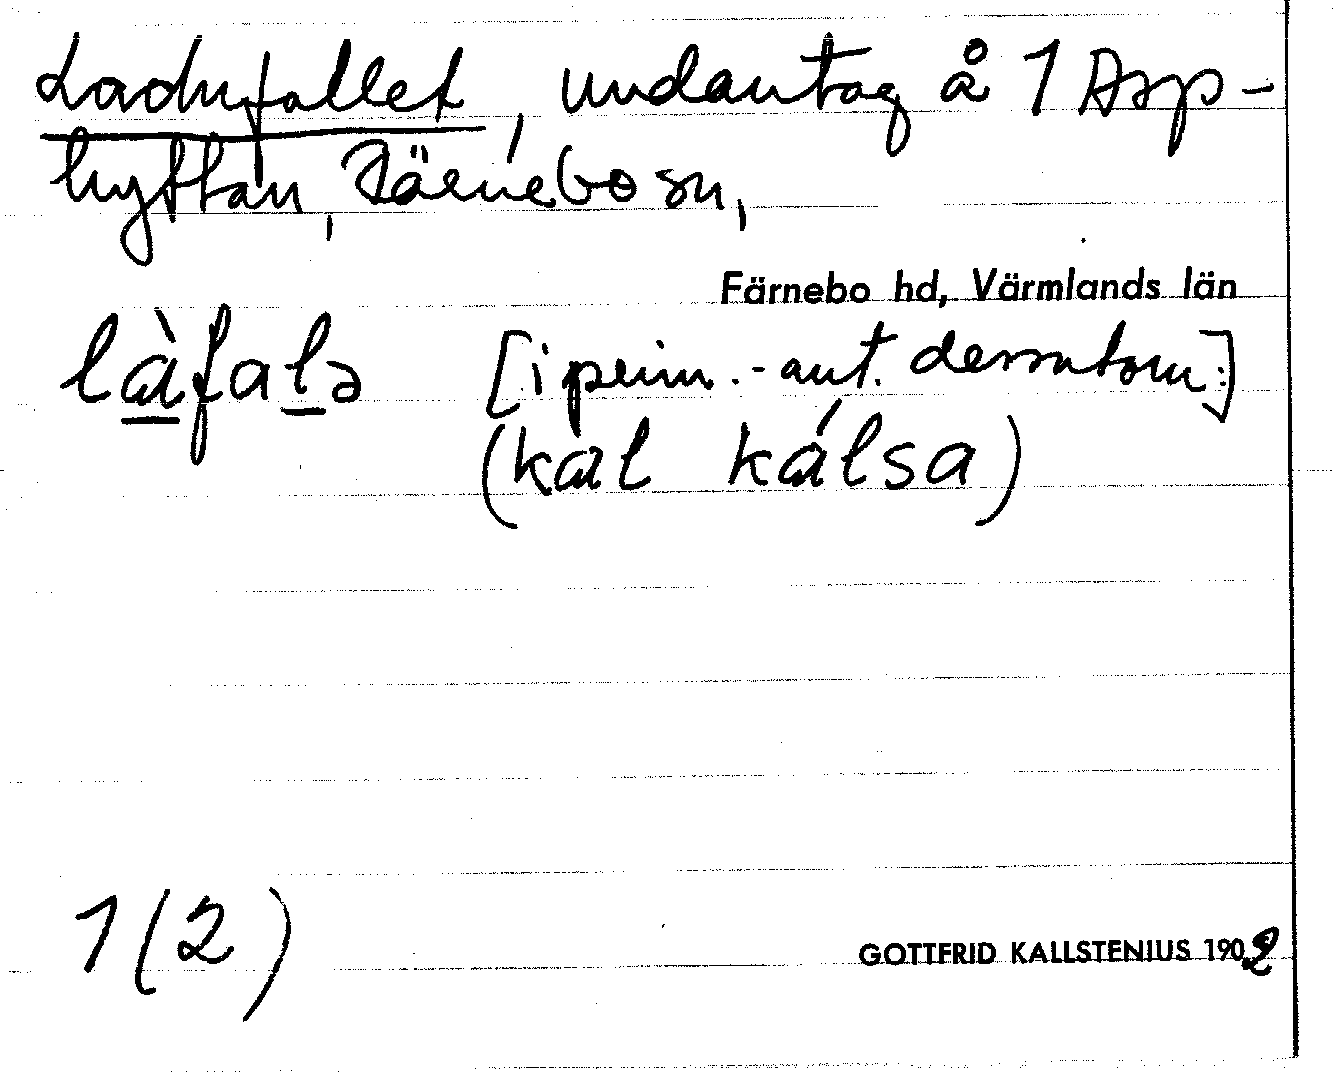 Ladufallet, undantag å 1 Asp-
hyttan, Färnebo sn,
Färnebo hd, Värmlands län
là̱faḻə [i prim.-ant. dessutom:]
(kal kálsa)
1(2) GOTTFRID KALLSTENIUS 1902